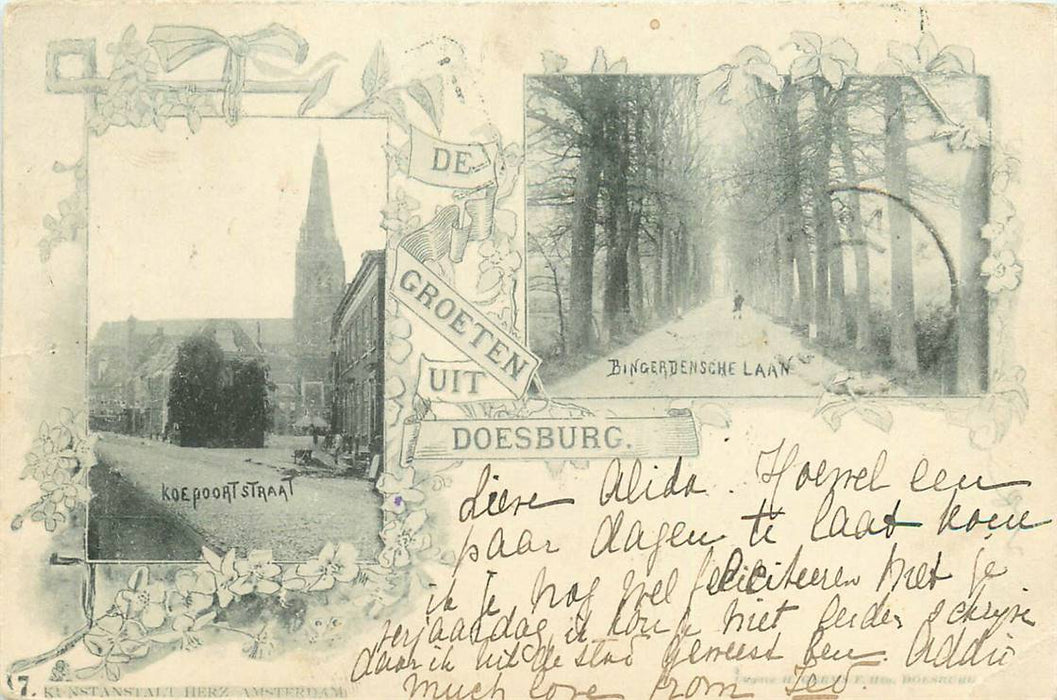 DE
GROETEN
UIT
DOESBURG.
KOEPOORTSTRAAT
BINGERDENSCHE LAAN
Lieve Alida. Hoewel een
paar dagen te laat kom
ik je nog wel feliciteeren met je
verjaardag, ik kon u niet eerder schrijven
daar ik uit de stad geweest ben. Addio
much love from
7. KUNSTANSTALT HERZ AMSTERDAM
DOESBURG